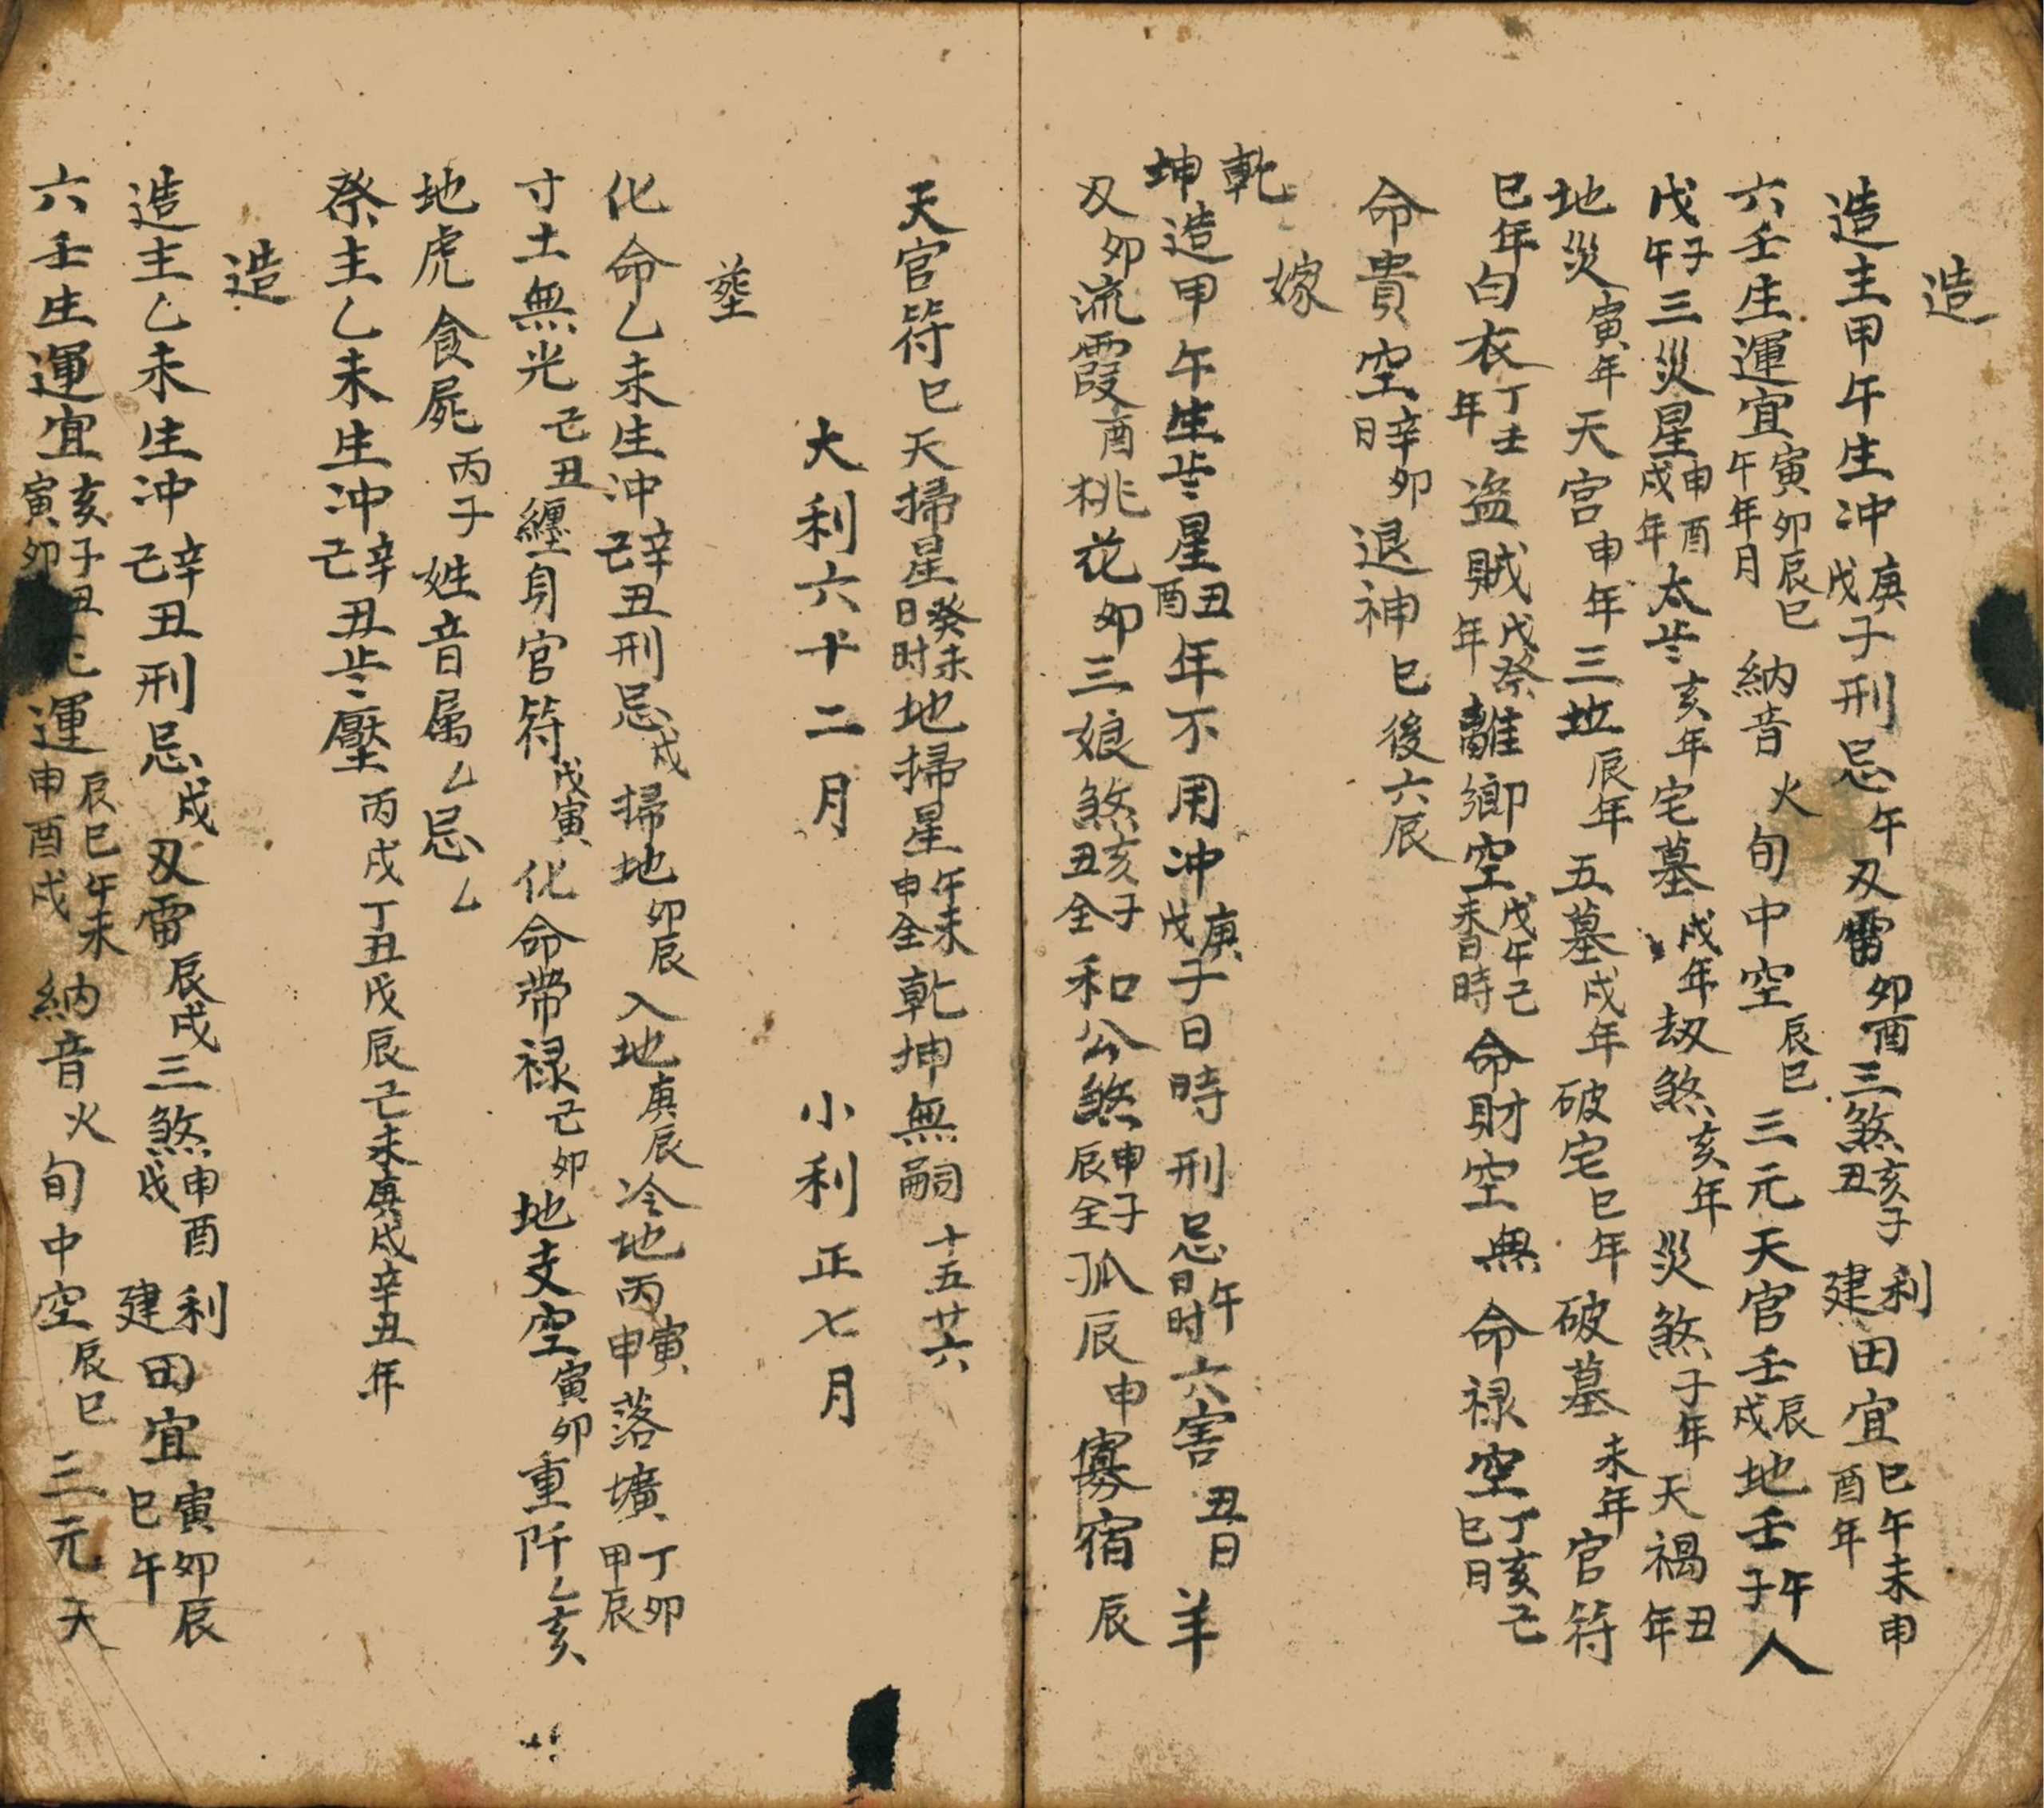 造
造主甲午生冲庚戊子刑忌午刃雷卯酉三煞亥子丑利建田宜巳午未申酉年
六壬生運宜寅卯辰巳午年月納音火旬中空辰巳三元天官壬辰戌地壬午子人
戊子午三災星申酉戌年太歲亥年宅墓戌年劫煞亥年災煞子年天禍丑年
地災寅年天官申年三地辰年五墓戌年破宅巳年破墓未年官符
巳年白衣丁壬年盗賊戊癸年離鄉空戊午己未日時命財空無命禄空丁亥己巳日
命貴空辛卯日退神巳後六辰
嫁
乾坤造甲午生歲星丑酉年不用冲庚戊子日時刑忌午日时六害丑日羊
刃卯流霞酉桃花卯三娘煞亥子丑全和公煞申子辰全孤辰申寡宿辰
天官符巳天掃星癸未日时地掃星午未申全乾坤無嗣十五廿六
大利六十二月 小利正七月
塟
化命乙未生冲辛己丑刑忌戌掃地卯辰入地庚辰冷地丙寅申落壙丁卯甲辰
寸土無光己丑纏身官符戊寅化命帶禄己卯地支空寅卯重阡乙亥
地虎食屍丙子姓音属乙忌乙
祭主乙未生冲辛己丑歲壓丙戌丁丑戊辰己未庚戌辛丑年
造
造主乙未生冲辛己丑刑忌戌刃雷辰戌三煞申酉戌利建田宜寅卯辰巳午
六壬生運宜亥子丑寅卯運辰巳午未申酉戌納音火旬中空辰巳三元天